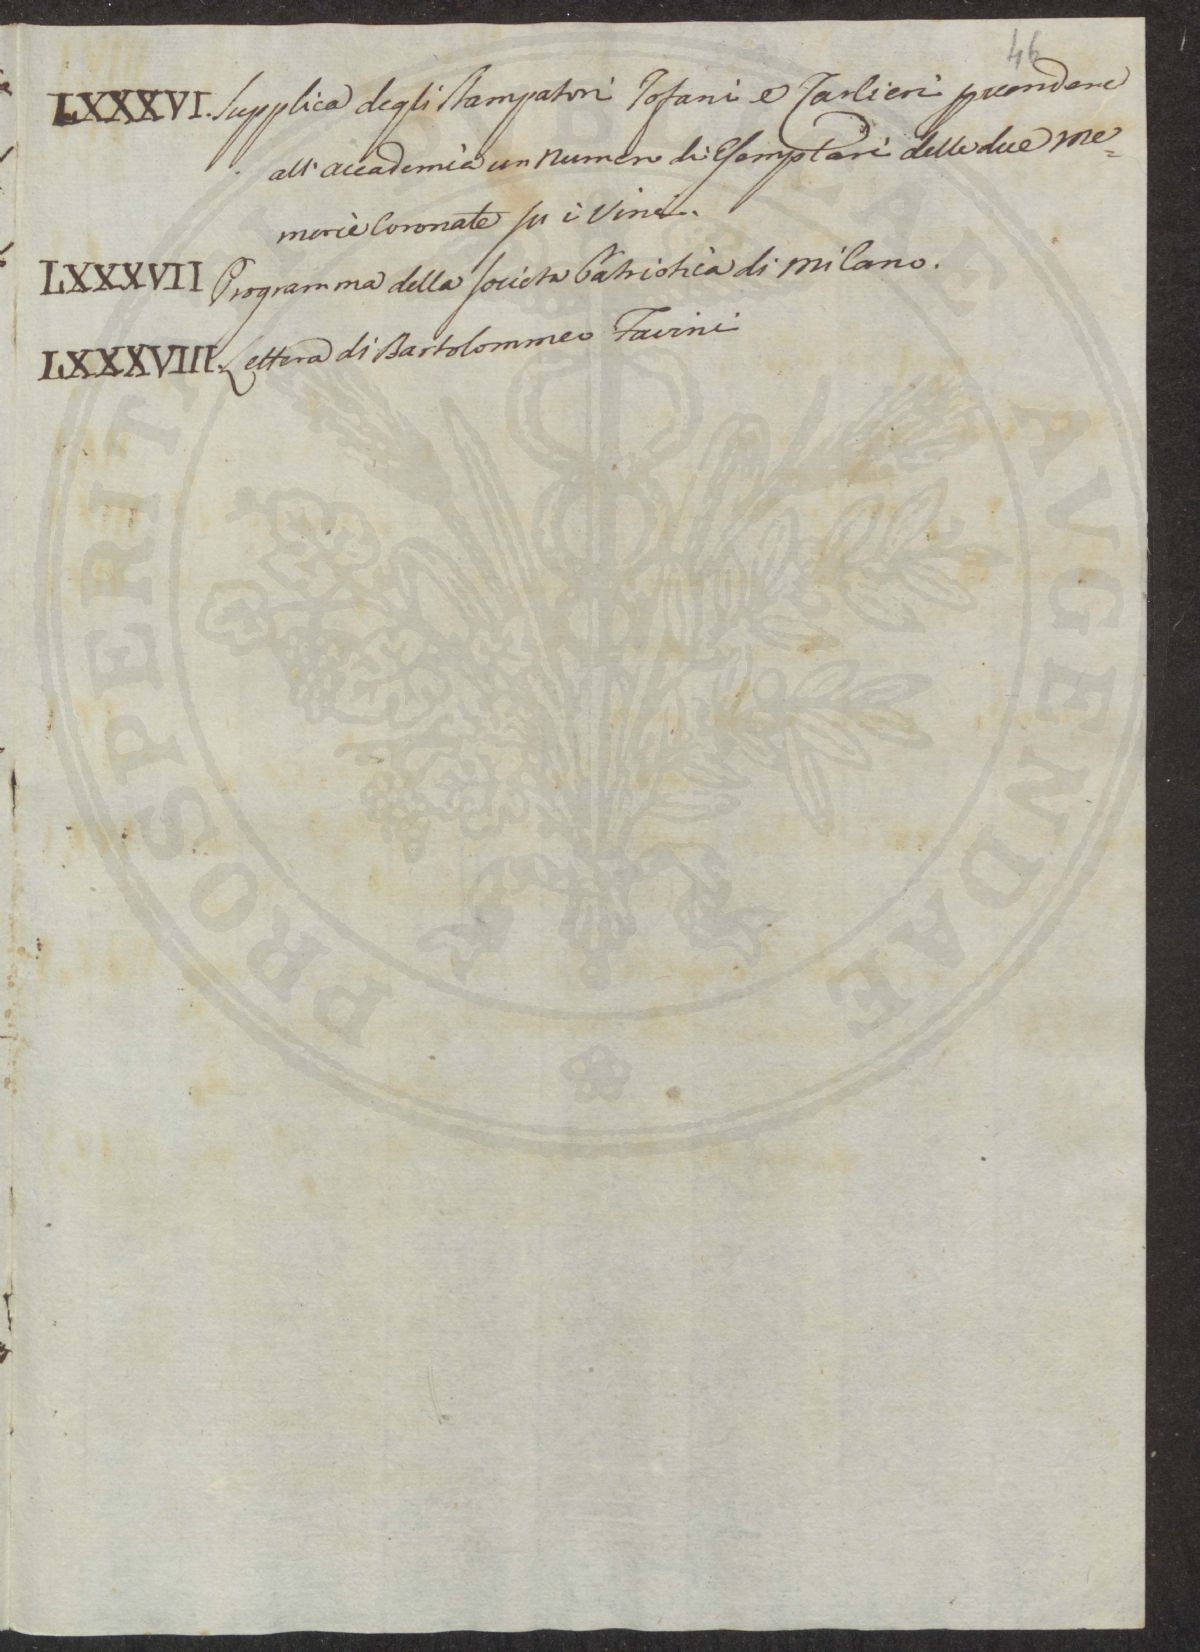 46
LXXXVI. Supplica degli Stampatori Tofani e Carlieri p vendere
all' accademia un Numero di Esemplari delle due Me=
morie Coronate su i Vini.
LXXXVII Programma della Società Patriotica di Milano.
LXXXVIII. Lettera di Bartolommeo Favini
PROSPERITATI PUBLICAE AVGENDAE